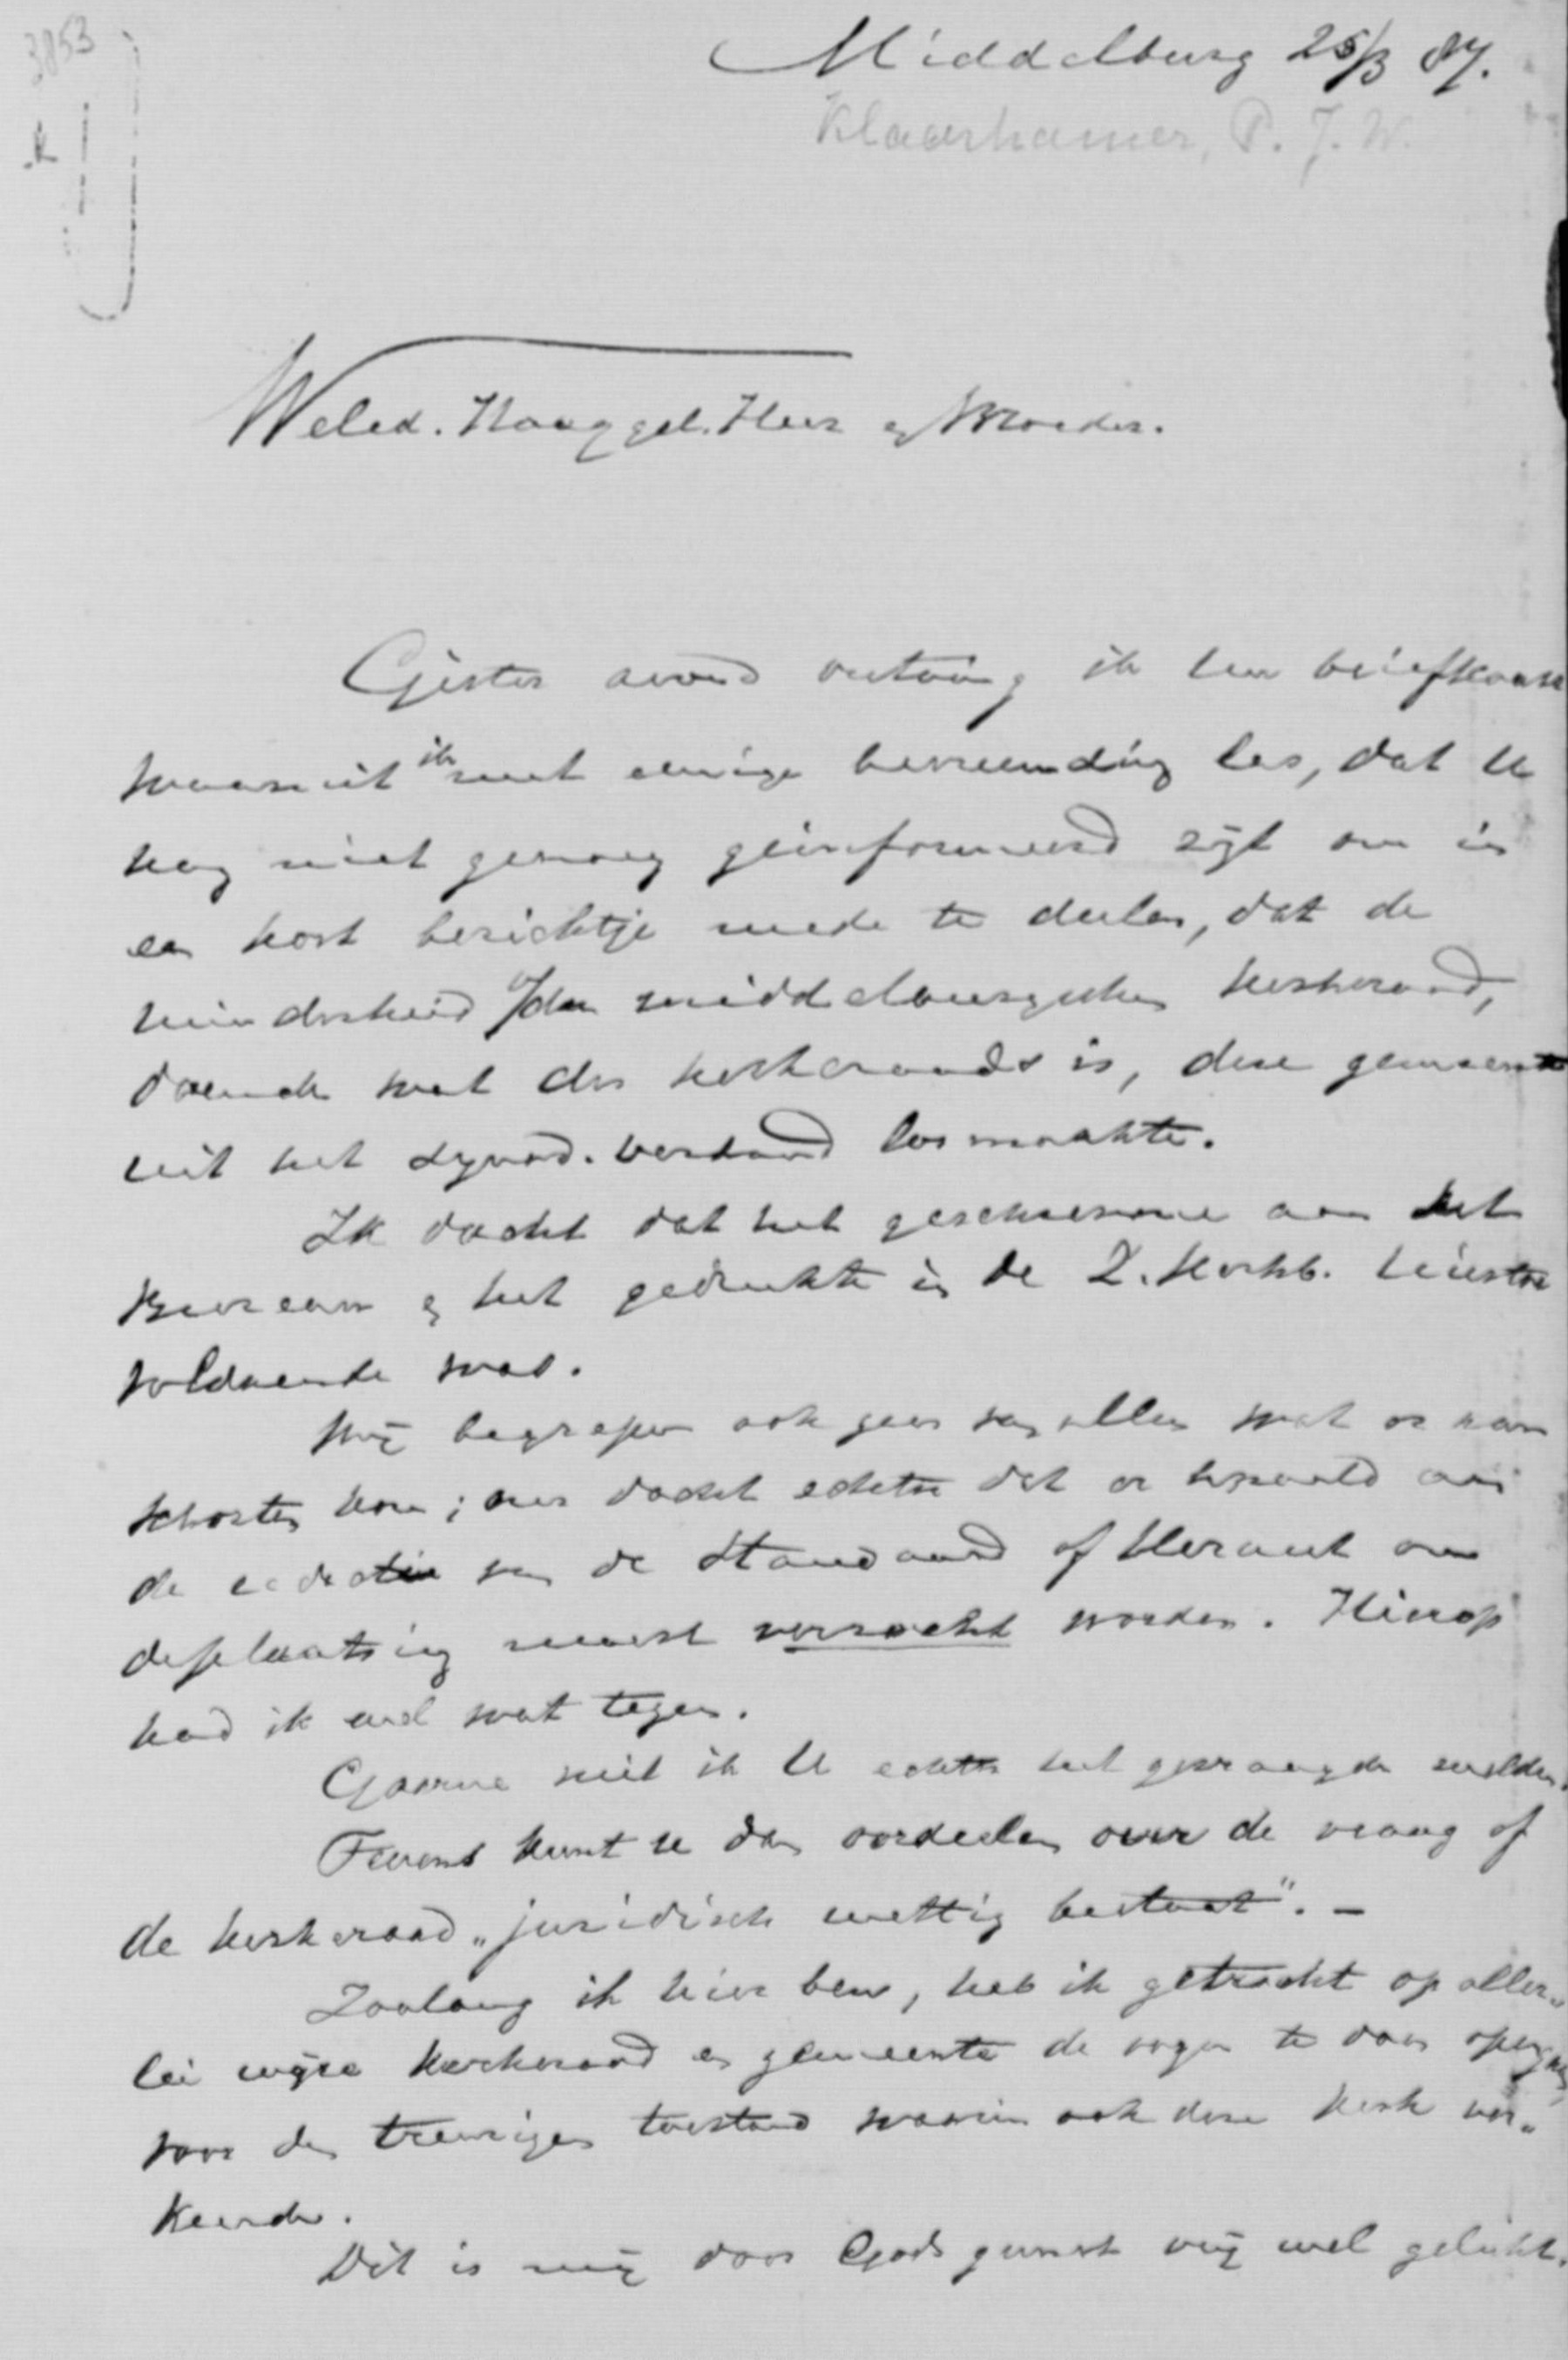 3853
Middelburg 25/3 87.
Klaarhamer, P. J. W.
Weled. Hooggel. Heer en Broeder.
Gister avond ontving ik uw briefkaart
waaruit ik met eenige bevreemding las, dat U
nog niet genoeg geinformeerd zijt om in
een kort berichtje mede te deelen, dat de
minderheid v/den middelburgschen kerkeraad,
doende wat des kerkeraads is, deze gemeente
uit het synod. verband losmaakte.
Ik dacht dat het geschrevene aan het
Bureau en het gedrukte in de Z. Kerkb. hierto
voldoende was.
Wij begrepen ook geen van allen wat er aan
schorten kon; men dacht echter dat er bepaald aan
de redactie van de Standaard of Heraut om
deplaatsing moest verzocht worden. Hierop
had ik wel wat tegen.
Gaarne wil ik U echter het gevraagde melden.
Tevens kunt u dan oordeelen over de vraag of
de kerkeraad „juridisch wettig bestaat". —
Zoolang ik hier ben, heb ik getracht op aller„
lei wijze kerkeraad en gemeente de oogen te doen opengaan
voor den treurigen toestand waarin ook deze kerk ver„
keerde.
Dit is mij door Gods gunst vrij wel gelukt.